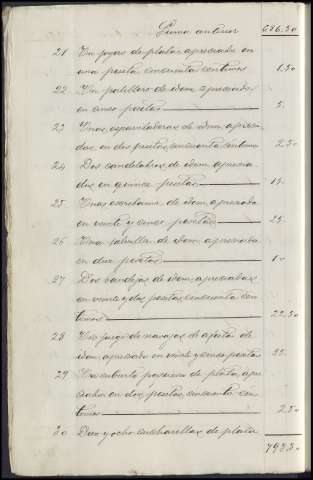 Suma anterior 686.50
21 Un joyero de plata apreciado en
una peseta cincuenta centimos 1.50
22 Un palillero de idem, apreciado
en cinco pesetas 5.
23 Unas espaviladeras de idem, aprecia-
das en dos pesetas cincuenta centimos 2.50
24 Dos candelabros de idem aprecia-
dos en quince pesetas 15.
25 Una escribania de idem, apreciada
en veinte y cinco pesetas 25.
26 Una palmatoria de idem, apreciada
en diez pesetas 10
27 Dos bandejas de idem, apreciadas
en veinte y dos pesetas cincuenta cen-
timos 22.50
28 Un juego de navajas de afeitar de
idem, apreciado en veinte y cinco pesetas 25.
29 Un cubierto pequeño de plata, apre-
ciado en dos pesetas, cincuenta cén-
timos 2.50
30 Diez y ocho cucharillas de plata
795.50